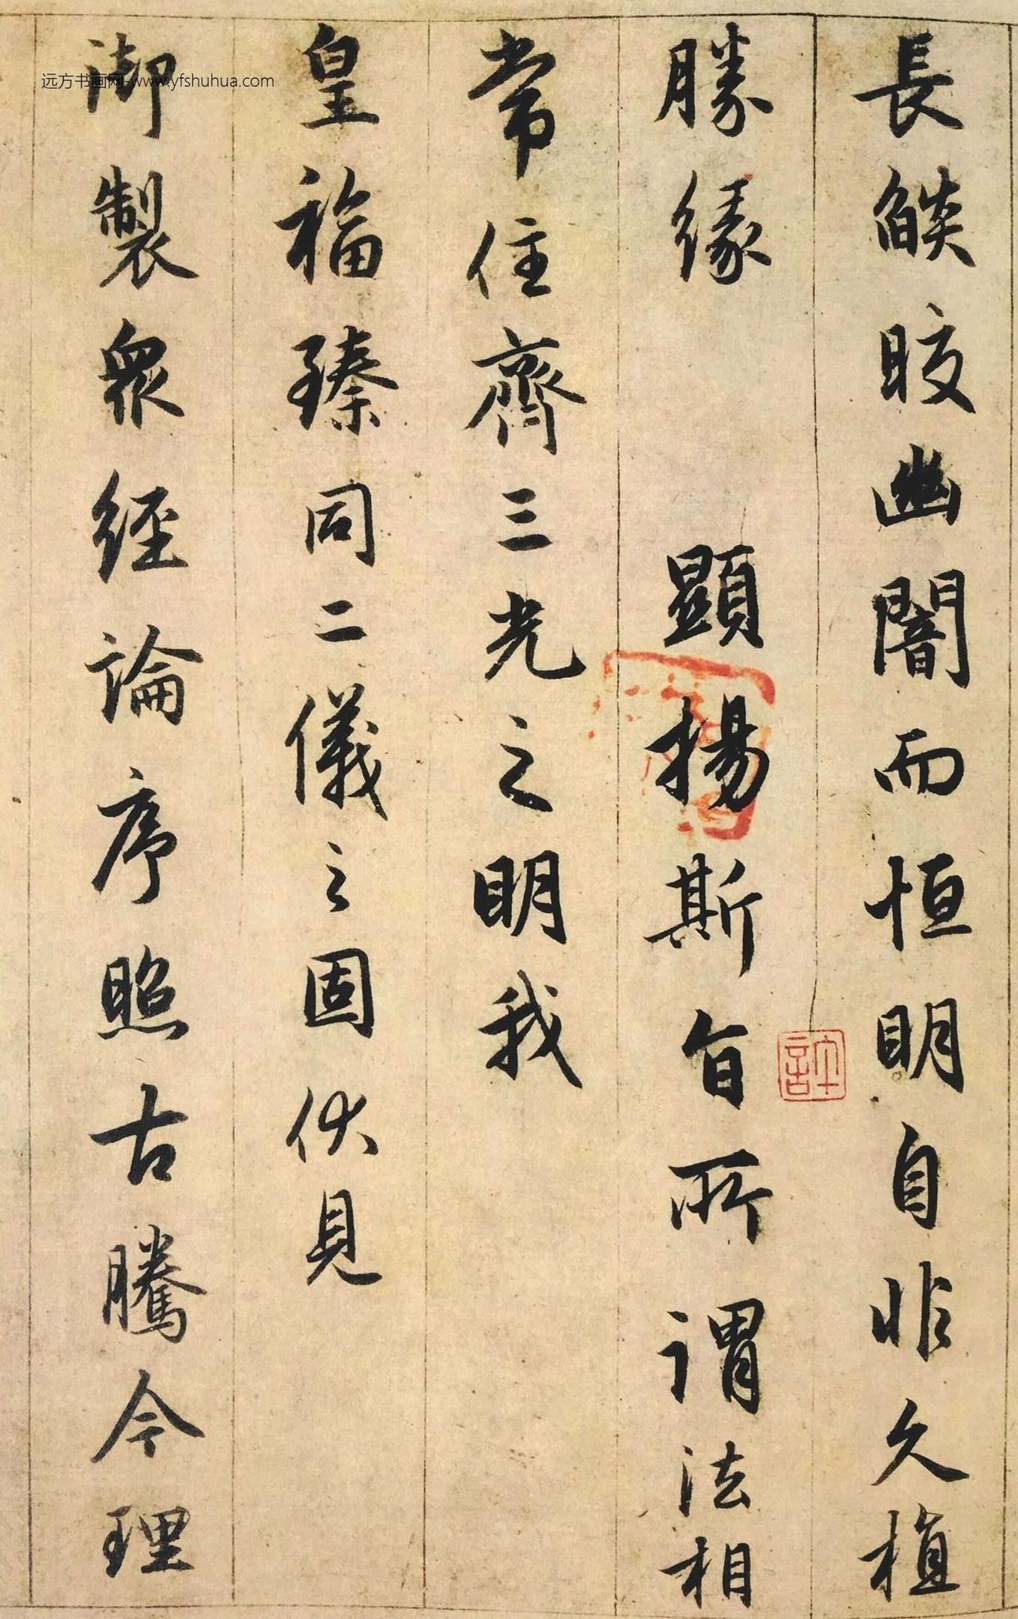 長燄皎幽闇而恒明自非久植
勝緣 顯揚斯旨所謂法相
常住齊三光之明我
皇福臻同二儀之固伏見
御製眾經論序照古騰今理
許
远方书画网-www.yfshuhua.com